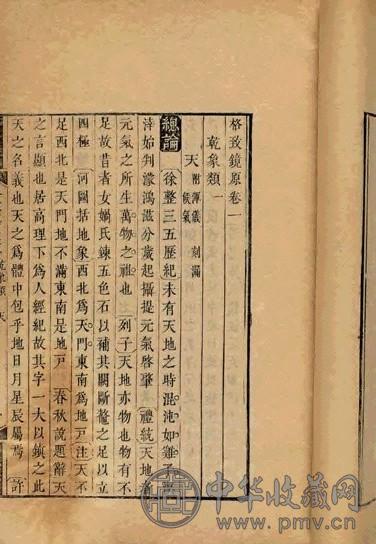 格致鏡原卷一
乾象類一
天 附渾儀 刻漏 候氣
總論 徐整三五歷紀未有天地之時混沌如雞子
涬始判濛鴻滋分歲起攝提元氣啓肇 禮統天地者
元氣之所生萬物之祖也 列子天地亦物也物有不
足故昔者女媧氏鍊五色石以補其闕斷鰲之足以立
四極 河圖括地象西北爲天門東南爲地戶注天不
足西北是天門地不滿東南是地戶 春秋說題辭天
之言顯也居高理下爲人經紀故其字一大以鎮之此
天之名義也天之爲體中包乎地日月星辰屬焉 許
乾象類 天
中华收藏网
www.pmv.cn